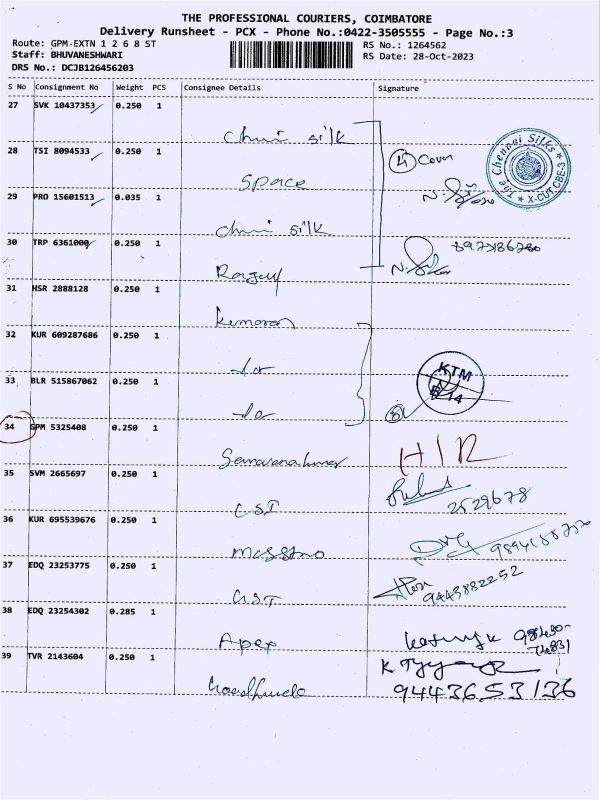 THE PROFESSIONAL COURIERS, COIMBATORE
Delivery Runsheet - PCX - Phone No.:0422-3505555 - Page No.:3
Route: GPM-EXTN 1 2 6 8 ST
RS No.: 1264562
Staff: BHUVANESHWARI
RS Date: 28-Oct-2023
DRS No.: DCJB126456203
S No Consignment No Weight PCS Consignee Details Signature
27 SVK 10437353 0.250 1
silk
28 TSI 8094533 0.250 1
4 Cover
The Chennai Silks
X-CUT, CBE-
Space
29 PRO 15601513 0.035 1
silk
30 TRP 6361000 0.250 1
31 HSR 2888128 0.250 1
Kumaran
32 KUR 609287686 0.250 1
do
KTM
33 BLR 515867062 0.250 1
do
34 GPM 5325408 0.250 1
HIR
Saravanakumar
35 SVM 2665697 0.250 1
2529678
GST
36 KUR 695539676 0.250 1
37 EDQ 23253775 0.250 1
9445882252
GST
38 EDQ 23254302 0.285 1
Apex
98430-
74831
39 TVR 2143604 0.250 1
9443653136